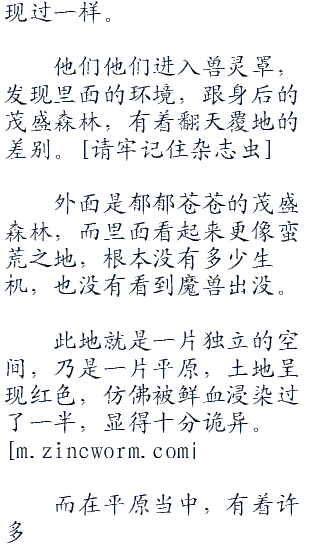 现过一样。
他们他们进入兽灵罩，
发现里面的环境，跟身后的
茂盛森林，有着翻天覆地的
差别。[请牢记住杂志虫]
外面是郁郁苍苍的茂盛
森林，而里面看起来更像蛮
荒之地，根本没有多少生
机，也没有看到魔兽出没。
此地就是一片独立的空
间，乃是一片平原，土地呈
现红色，仿佛被鲜血浸染过
了一半，显得十分诡异。
[m.zincworm.com¡
而在平原当中，有着许
多